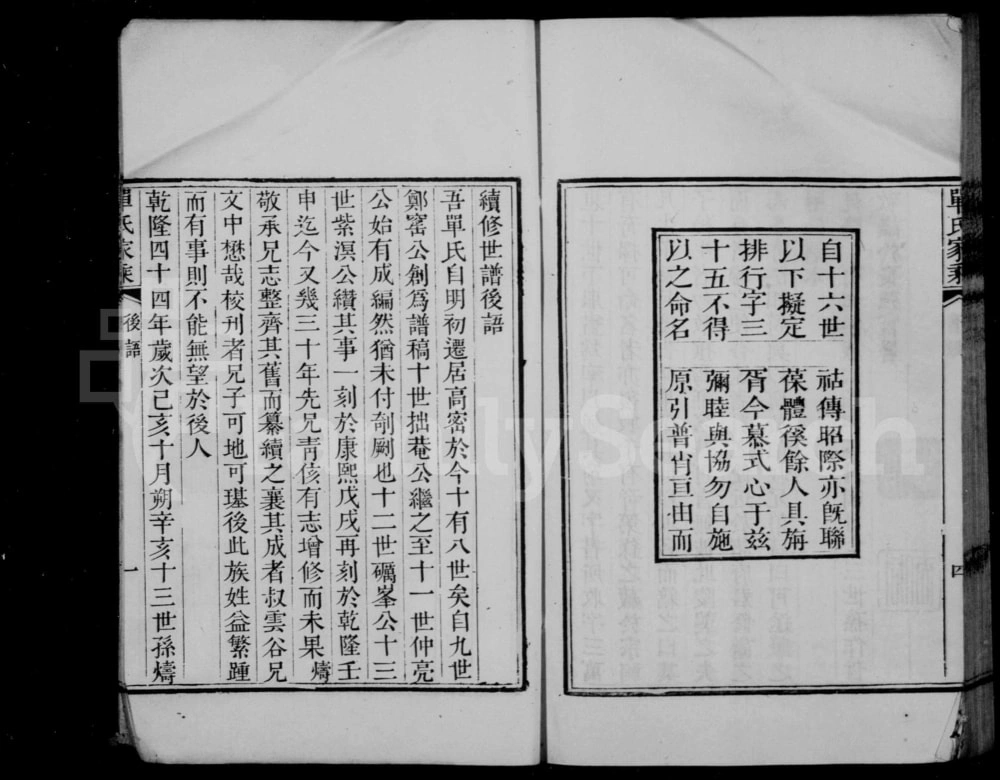 單氏家乘 四
自十六世
以下擬定
排行字三
十五不得
以之命名
祜傳昭際亦旣聯
葆體徯餘人具旃
胥今慕式心于玆
彌睦與協勿自施
原引普肖亘由而
續修世譜後語
吾單氏自明初遷居高密於今十有八世矣自九世
鄭窰公創爲譜稿十世拙菴公繼之至十一世仲亮
公始有成編然猶未付剞劂也十二世礪峯公十三
世紫溟公纘其事一刻於康熙戊戌再刻於乾隆壬
申迄今又幾三十年先兄靑侅有志增修而未果燽
敬承兄志整齊其舊而纂續之襄其成者叔雲谷兄
文中懋哉校刋者兄子可地可墓後此族姓益繁踵
而有事則不能無望於後人
乾隆四十四年歲次己亥十月朔辛亥十三世孫燽
單氏家乘 後語 一
FamilySearch